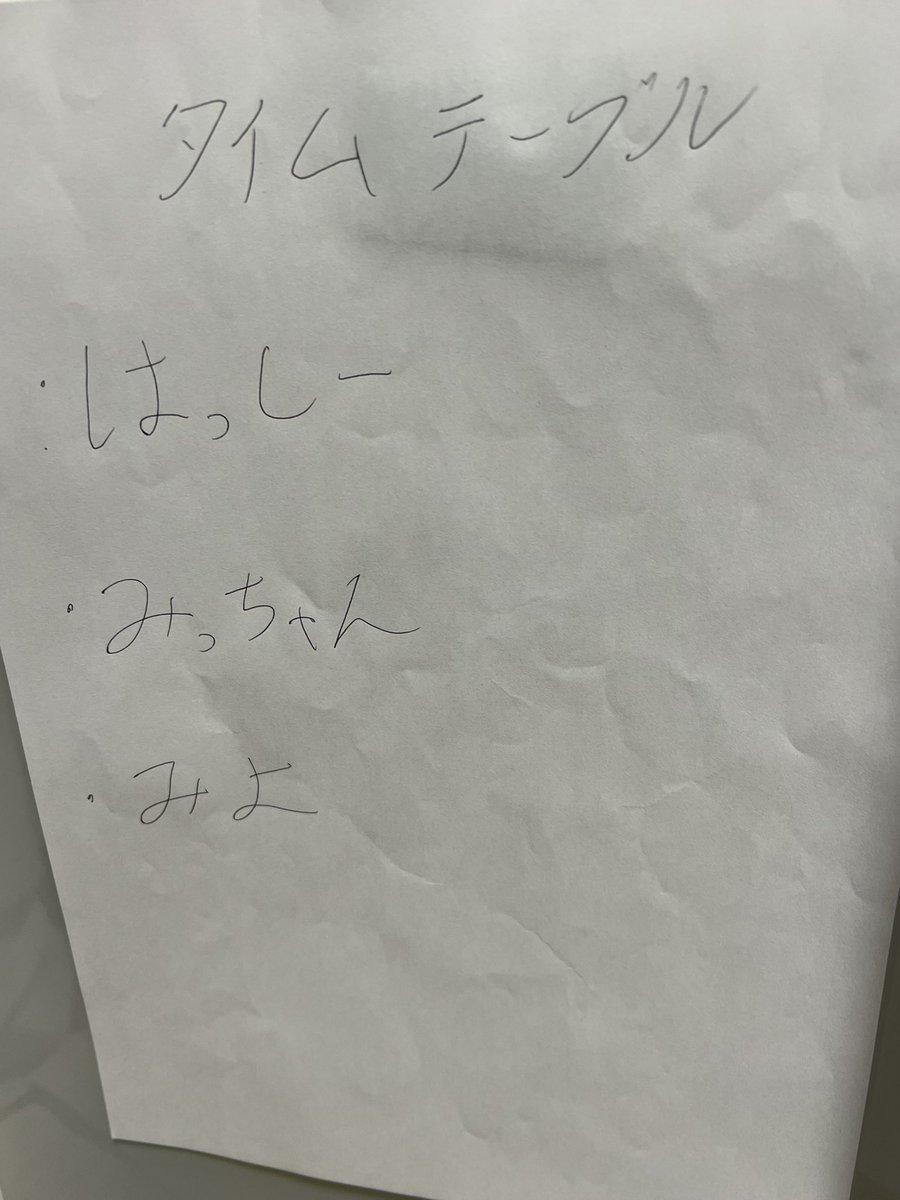 タイムテーブル
・はっしー
・みっちゃん
・みよ